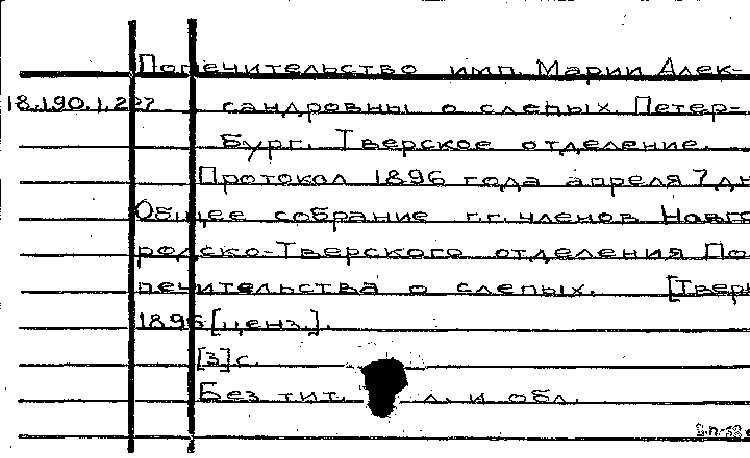 Попечительство имп. Марии Алек-
18.190.1.227 сандровны о слепых. Петер-
бург. Тверское отделение.
Протокол 1896 года апреля 7 дн
Общее собрание г.г. членов Новго
родско-Тверского отделения По
печительства о слепых. [Тверь
1896 [ценз.].
[3] с.
Без тит. л. и обл.